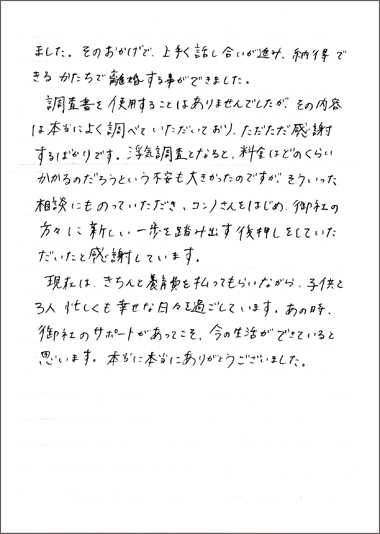 ました。そのおかげで、上手く話し合いが進み、納得で
きる かたちで離婚する事ができました。
調査書を使用することはありませんでしたが、その内容
は本当によく調べていただいており、ただただ感謝
するばかりです。浮気調査となると、料金はどのくらい
かかるのだろうという不安も大きかったのですが、そういった
相談にものっていただき、コンノさんをはじめ、御社の
方々に新しい一歩を踏み出す後押しをしていた
だいたと感謝しています。
現在は、きちんと養育費を払ってもらいながら、子供と
3人 忙しくも幸せな日々を過ごしています。あの時、
御社のサポートがあってこそ、今の生活ができていると
思います。本当に本当にありがとうございました。